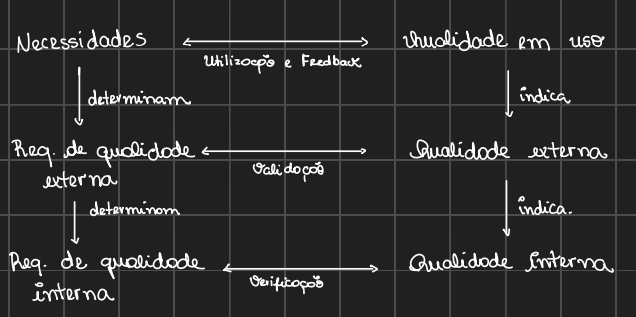 Necessidades
Qualidade em uso
Utilização e Feedback
determinam
indica
Req. de qualidade
externa
Qualidade externa
Validação
determinam
indica.
Req. de qualidade
interna
Qualidade interna
Verificação